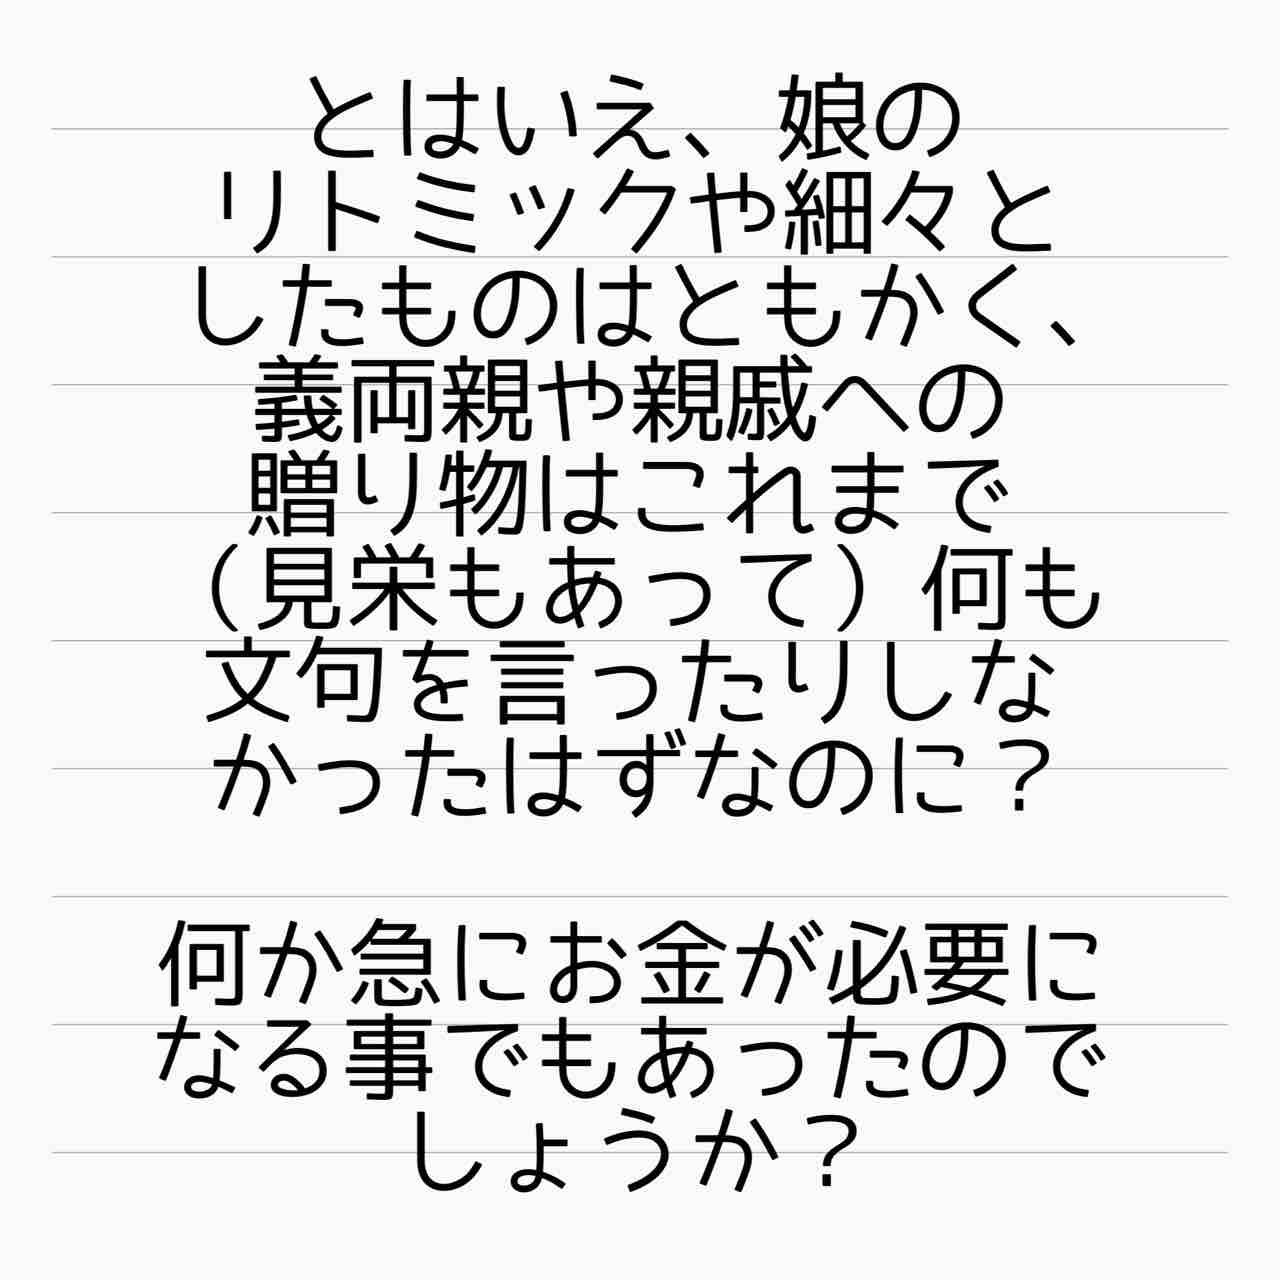 とはいえ、娘の
リトミックや細々と
したものはともかく、
義両親や親戚への
贈り物はこれまで
（見栄もあって）何も
文句を言ったりしな
かったはずなのに？
何か急にお金が必要に
なる事でもあったので
しょうか？